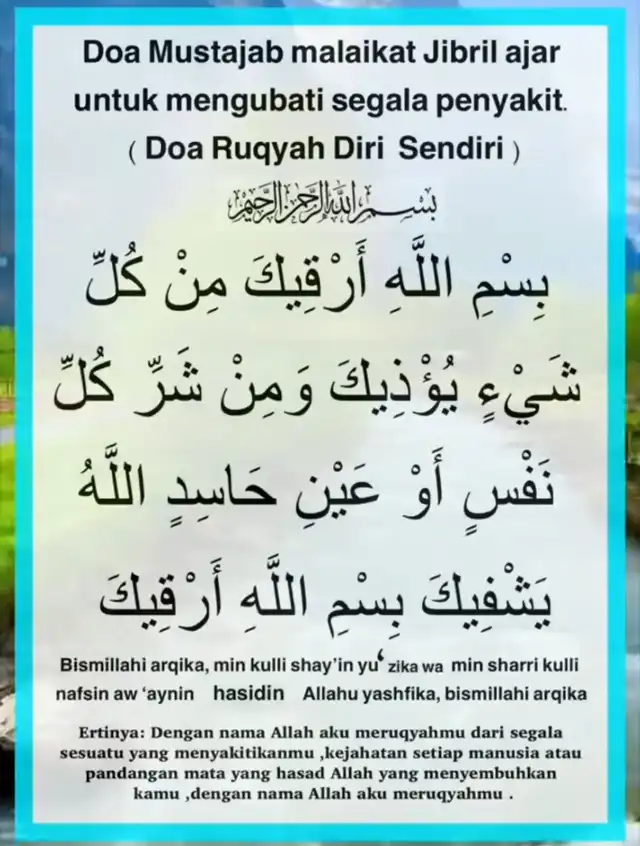 Doa Mustajab malaikat Jibril ajar
untuk mengubati segala penyakit.
( Doa Ruqyah Diri Sendiri )
بسم الله الرحمن الرحيم
بِسْمِ اللَّهِ أَرْقِيكَ مِنْ كُلِّ
شَيْءٍ يُؤْذِيكَ وَمِنْ شَرِّ كُلِّ
نَفْسٍ أَوْ عَيْنِ حَاسِدٍ اللَّهُ
يَشْفِيكَ بِسْمِ اللَّهِ أَرْقِيكَ
Bismillahi arqika, min kulli shay’in yu‘ zika wa min sharri kulli
nafsin aw ‘aynin hasidin Allahu yashfika, bismillahi arqika
Ertinya: Dengan nama Allah aku meruqyahmu dari segala
sesuatu yang menyakitikanmu ,kejahatan setiap manusia atau
pandangan mata yang hasad Allah yang menyembuhkan
kamu ,dengan nama Allah aku meruqyahmu .